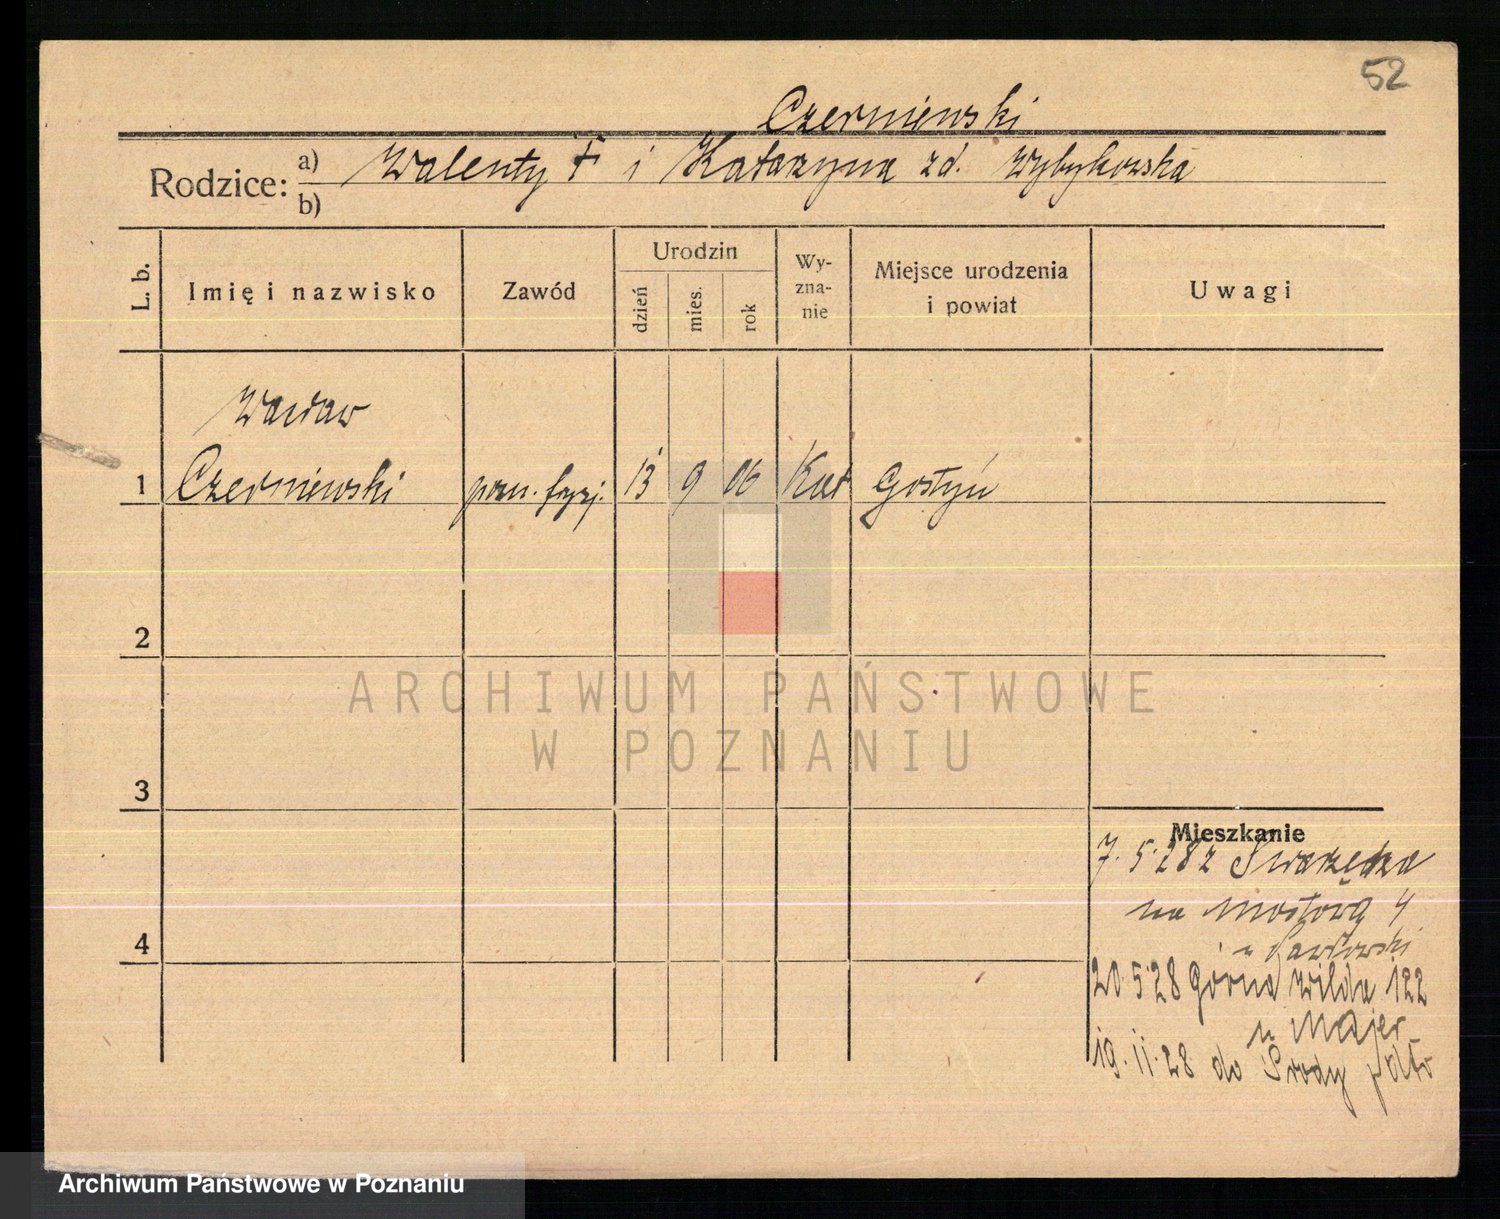 52
Czerniewski
Rodzice: a) Walenty F i Katarzyna zd. Wybykowska
b)
L. b. Imię i nazwisko Zawód Urodzin dzień mies. rok Wy-zna-nie Miejsce urodzenia i powiat Uwagi
Wacław
1 Czerniewski pom. fryzj. 13 9 06 Kat Gostyń
2
ARCHIWUM PAŃSTWOWE
W POZNANIU
3
Mieszkanie
7.5.28 z Swarzędza
na 4
4
u Pawłowski
20.5.28 Górna Wilda 122
u Majer
19.11.28 do Środy
Archiwum Państwowe w Poznaniu